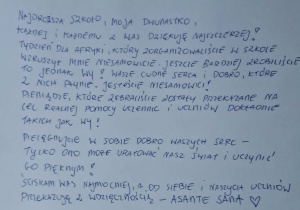 NAJDROŻSZA SZKOŁO, MOJA DWUNASTKO,
KAŻDEJ I KAŻDEMU Z WAS DZIĘKUJĘ NAJSZCZERZEJ!
TYDZIEŃ DLA AFRYKI, KTÓRY ZORGANIZOWALIŚCIE W SZKOLE
WZRUSZYŁ MNIE NIESAMOWICIE. JESZCZE BARDZIEJ ZROBILIŚCIE
TO JEDNAK WY! WASZE CUDNE SERCA I DOBRO, KTÓRE
Z NICH PŁYNIE. JESTEŚCIE NIESAMOWICI!
PIENIĄDZE, KTÓRE ZEBRALIŚCIE ZOSTAŁY PRZEKAZANE NA
CEL REALNEJ POMOCY UCZENNIC I UCZNIÓW DOKŁADNIE
TAKICH JAK WY!
PIELĘGNUJCIE W SOBIE DOBRO WASZYCH SERC -
TYLKO ONO MOŻE URATOWAĆ NASZ ŚWIAT I UCZYNIĆ
GO PIĘKNYM!
ŚCISKAM WAS NAJMOCNIEJ, A OD SIEBIE I NASZYCH UCZNIÓW
PRZEKAZUJĘ Z WDZIĘCZNOŚCIĄ - ASANTE SANA ♡